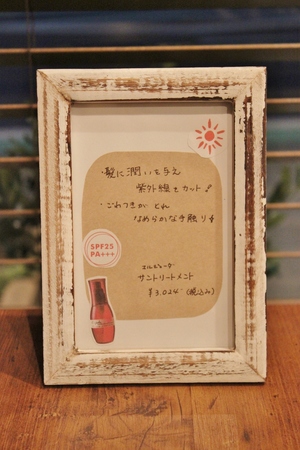 ・髪に潤いを与え
紫外線をカット!
・ごわつきがとれ
なめらかな手触り
SPF25
PA+++
エルジューダ
サントリートメント
¥3.024-(税込み)